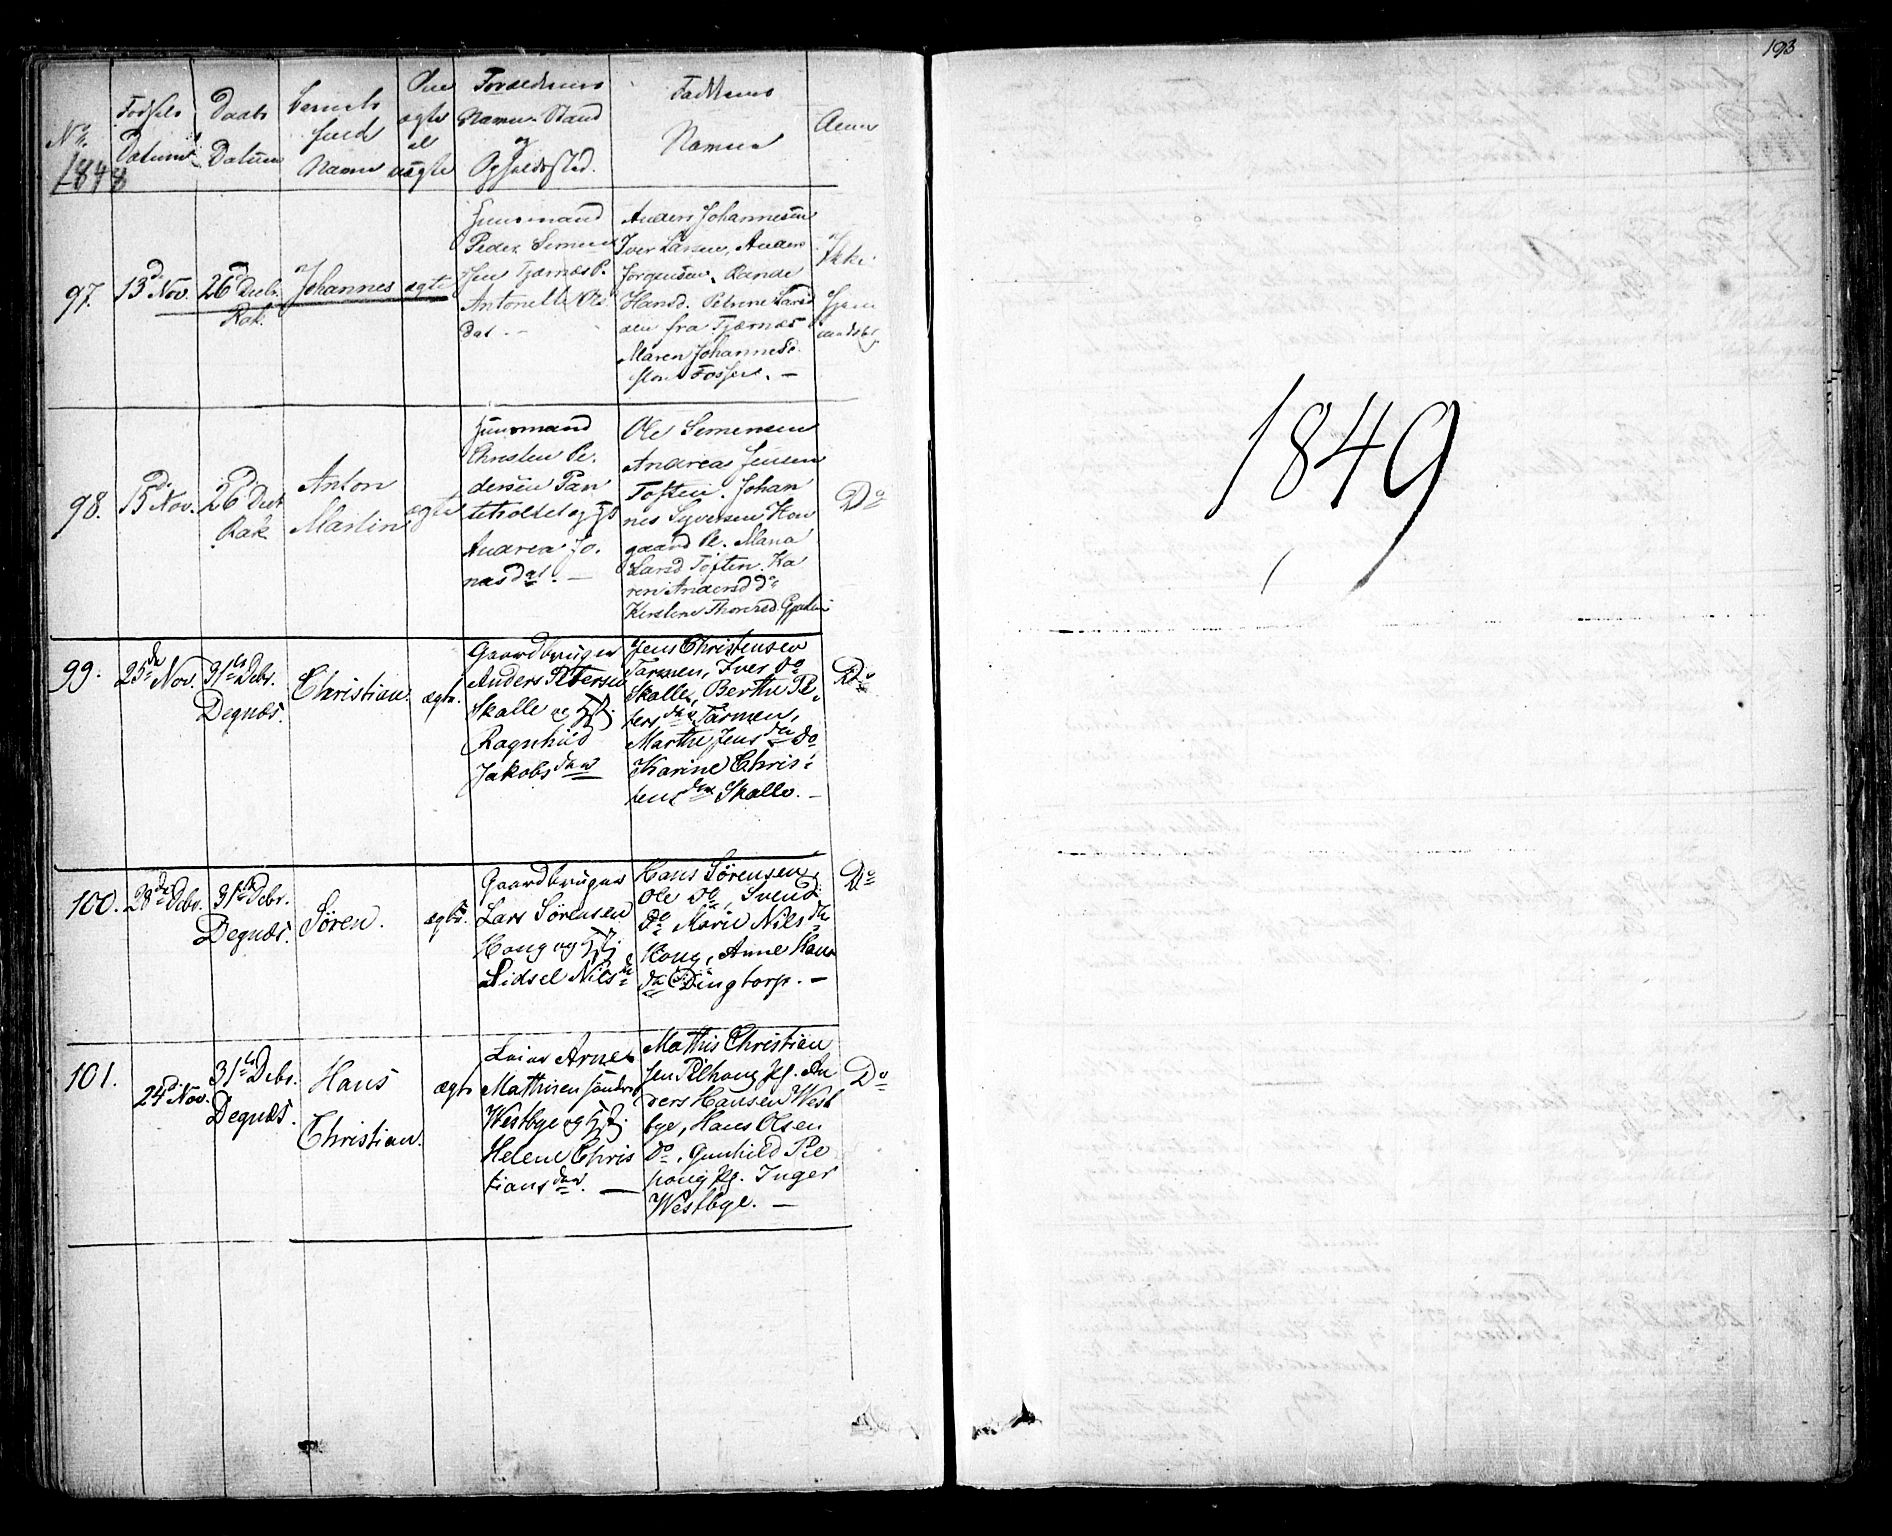 193
No. 1848
Fødsels Datum
Daabs Datum
Barnets fuld Navne
Om ægte el uægte
Forældrenes Navne Stand og Opholdssted.
Faddernes Navne
Anm
97.
13de Nov.
26 Decbr.
Rak.
Johannes
ægte
Huusmand
Peder Simen
sen Tjærnæs P.
Antonette Ols
dat. -
Anders Johannesen
Iver Larsen, Anders
Jørgensen, Rande
Hansd. Petrine Larsd
alle fra Tjærnæs
Maren Johannesd.
Fossen. -
Ikke
98.
15de Nov.
26 Decbr
Rak
Anton
Martin
ægte
Huusmand
Christen Pe.
dersen Pan
teholtet og Hst
Andrea Jo.
nasdat. -
Ole Simensen
Andreas Jensen
Toften. Johan
nes Syversen Kon
gaard Pe. Maria
Larsd Toften. Ka
ren Andersd do
Kerstine Thoresd.
Do
99.
25de Nov.
31te Debr.
Degnæs.
Christian.
ægte.
Gaardbruger
Anders Petersen
Skalle og Hst.
Ragnhild
Jakobsdatr
Jens Christensen
Tarmen, Iver do
Skalle, Berthe Pe
tersdatr Tarmen,
Marthe Jensdtr do
Karine Chris-
tensdatr Skalle. -
Do
100.
28de Debr.
31te Debr.
Degnæs.
Søren.
ægte.
Gaardbruger
Lars Sørensen
Houg og Hst.
Sidsel Nilsdr
Hans Sørensen,
Ole do, Svend
do Marie Nilsdtr
Houg, Anne Hans
da Dingtorp. -
Do
101.
24d Nov.
31te Debr.
Degnæs.
Hans
Christian.
ægte
Leier Arne
Mathisen søndre
Westbye og Hst.
Helene Chris
tiansdatr. -
Mathis Christian
sen Pilhoug Pg. An
ders Hansen West
bye, Hans Olsen
do, Gunhild Pil
houg Pg. Inger
Westbye. -
Do
1849